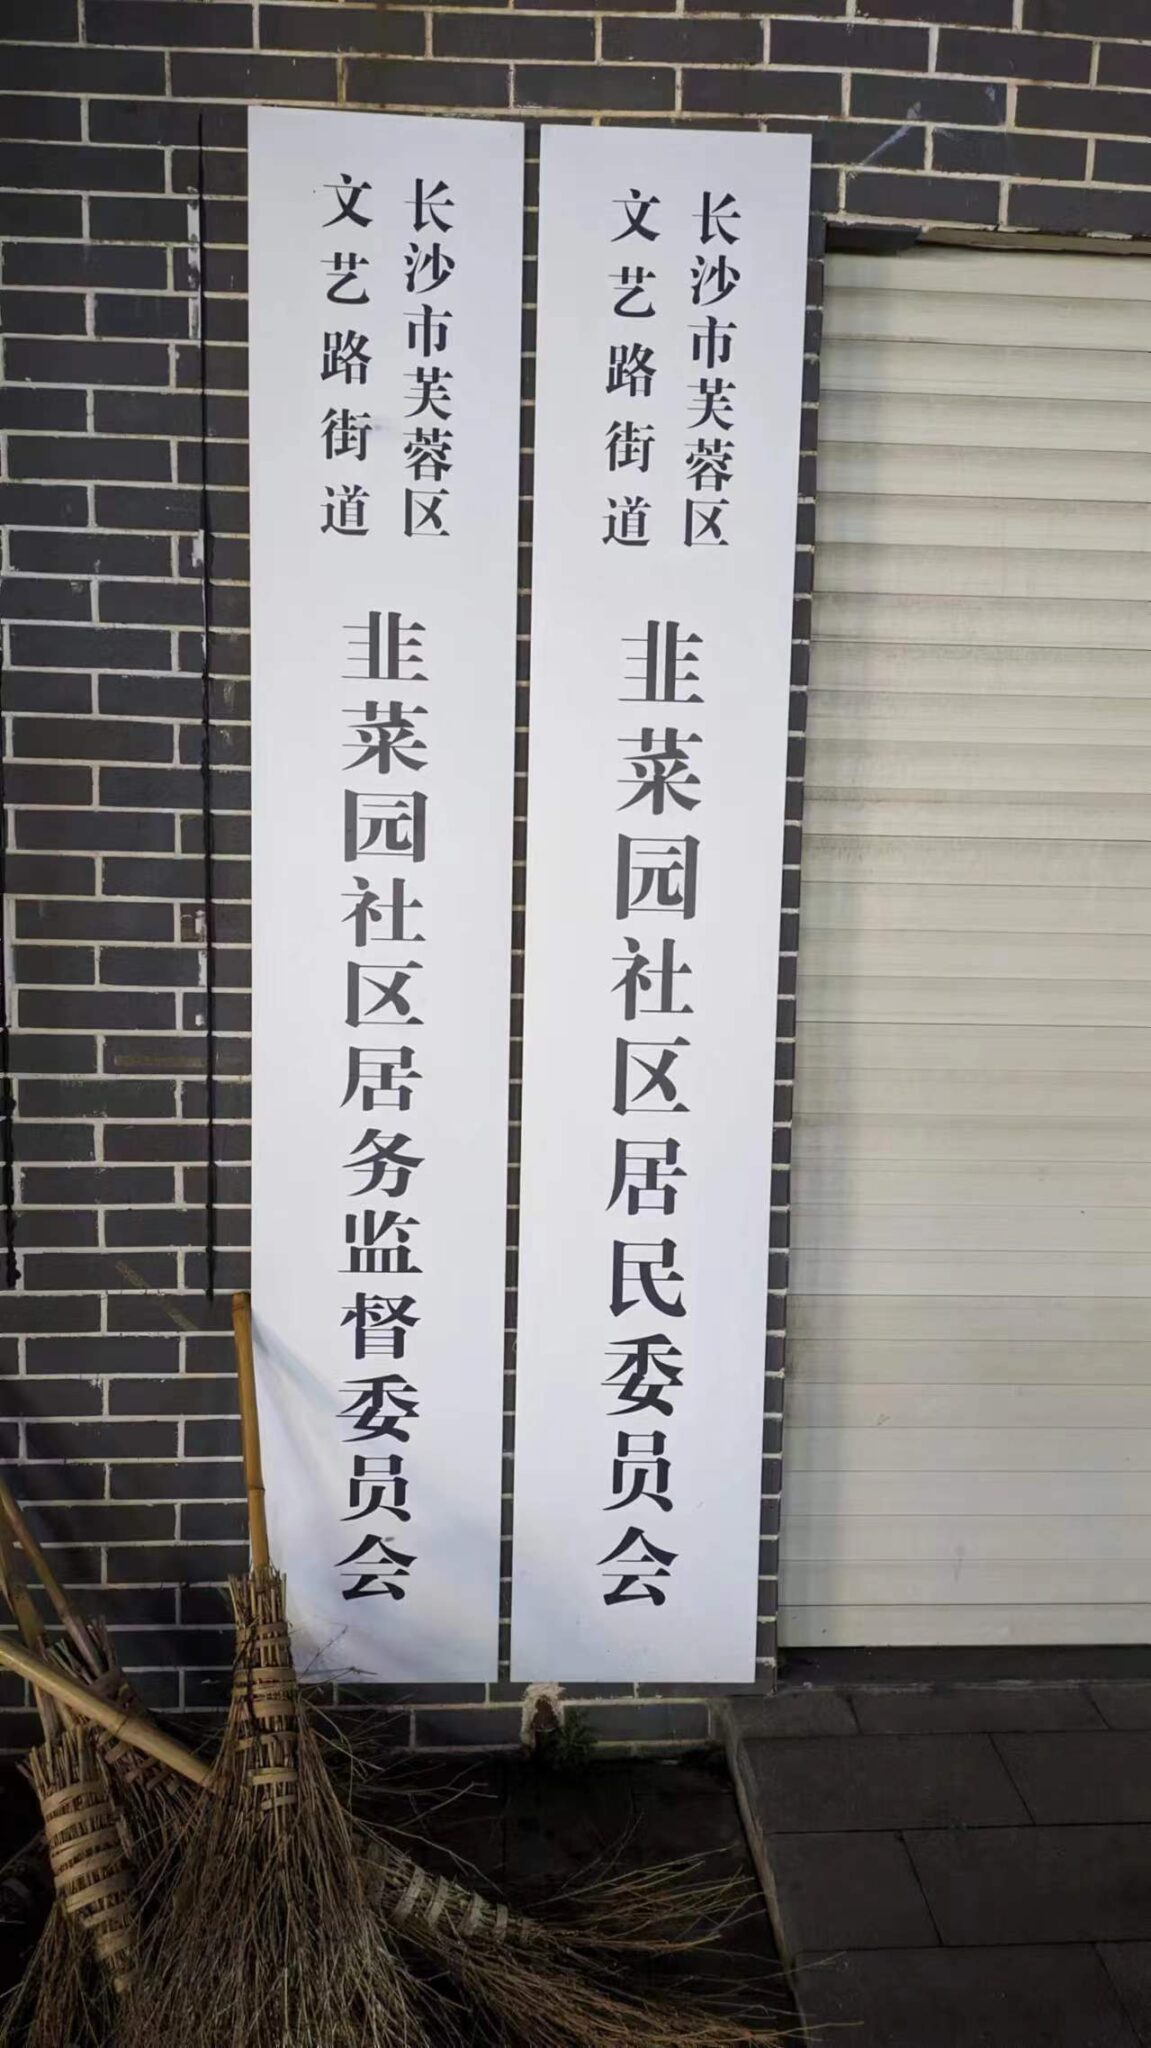 长沙市芙蓉区
文艺路街道
韭菜园社区居务监督委员会
长沙市芙蓉区
文艺路街道
韭菜园社区居民委员会